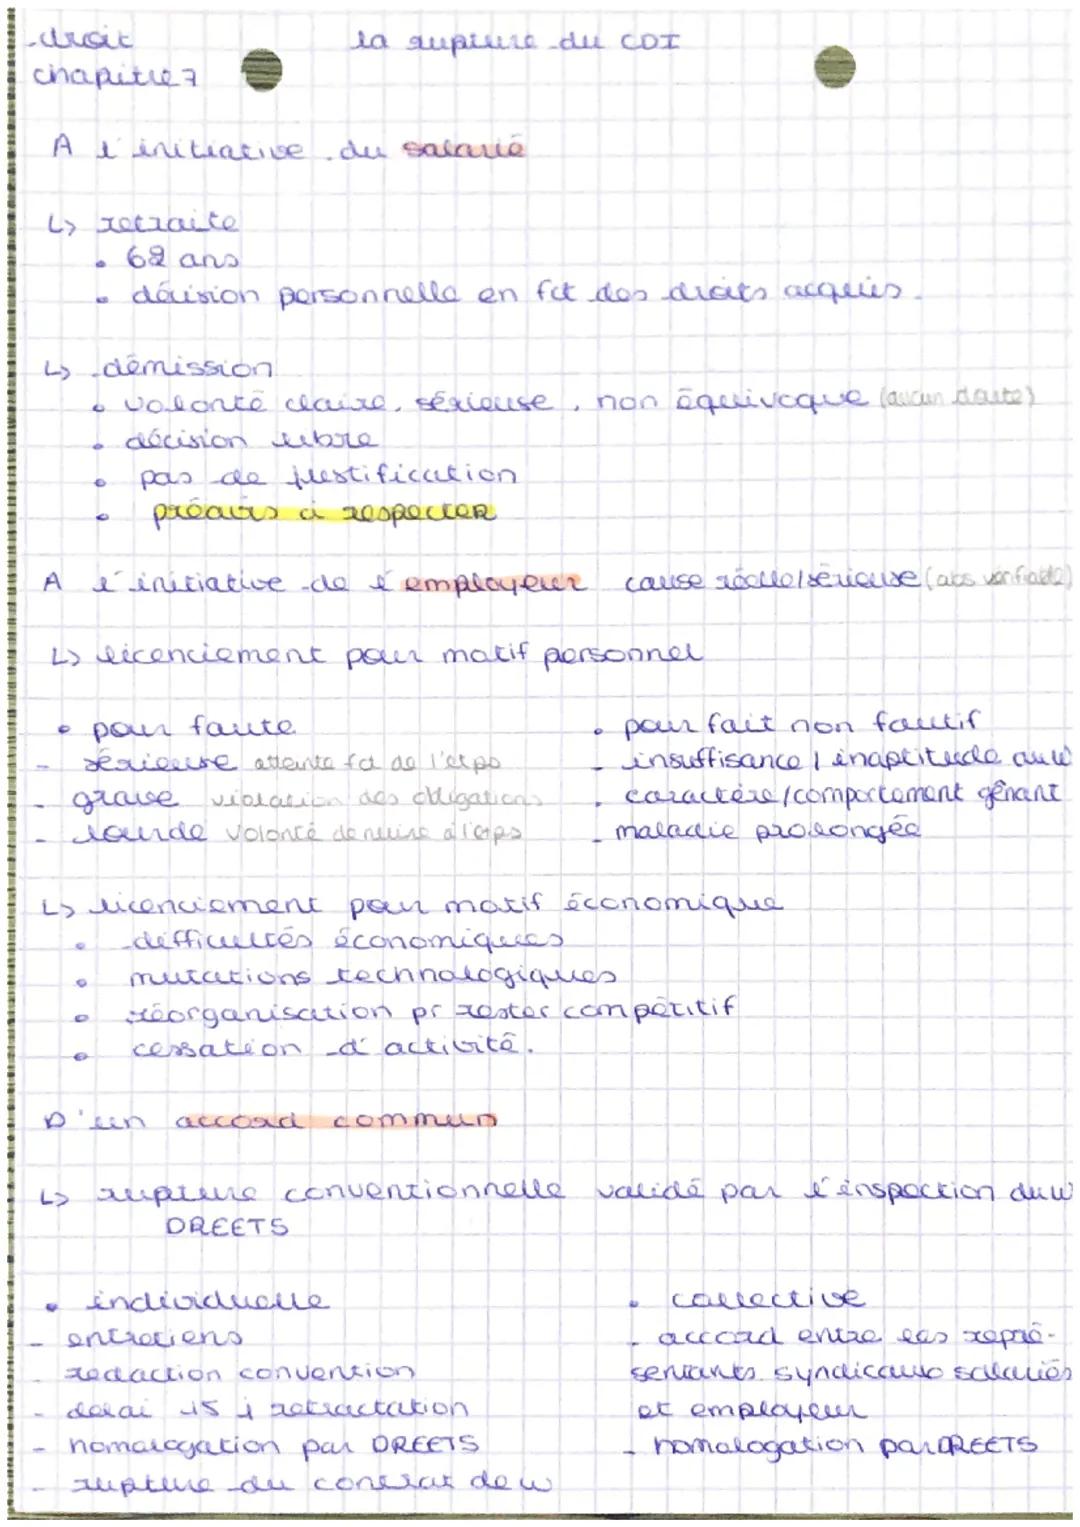 droit
la rupture du CDI
chapitre 7
A l'initiative du salarié
↳ retraite
• 62 ans
• décision personnelle en fct des droits acquis.
↳ démission
• volonté claire, sérieuse, non équivoque (aucun doute)
• décision libre
• pas de justification
• préavis à respecter
A l'initiative de l'employeur cause réelle/sérieuse (abs vérifiable)
↳ licenciement pour motif personnel
• pour faute
- sérieuse atteinte fct de l'etps
- grave violation des obligations
- lourde volonté de nuire à l'etps
• pour fait non fautif
- insuffisance / inaptitude au w
- caractère/comportement gênant
- maladie prolongée
↳ licenciement pour motif économique
• difficultés économiques
• mutations technologiques
• réorganisation pr rester compétitif
• cessation d'activité.
D'un accord commun
↳ rupture conventionnelle validé par l'inspection du w
DREETS
• individuelle
- entretiens
- rédaction convention
- délai 15 j rétractation
- homologation par DREETS
- rupture du contrat de w
• collective
- accord entre les repré-
sentants syndicaux salariés
et employeur
- homologation par DREETS